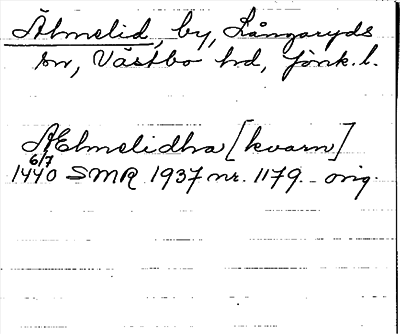 Älmelid, by, Långaryds
sn, Västbo hd, Jönk. l.
Ælmelidhra [kvarn]
6/7
1440 SMR 1937 nr. 1179. orig.